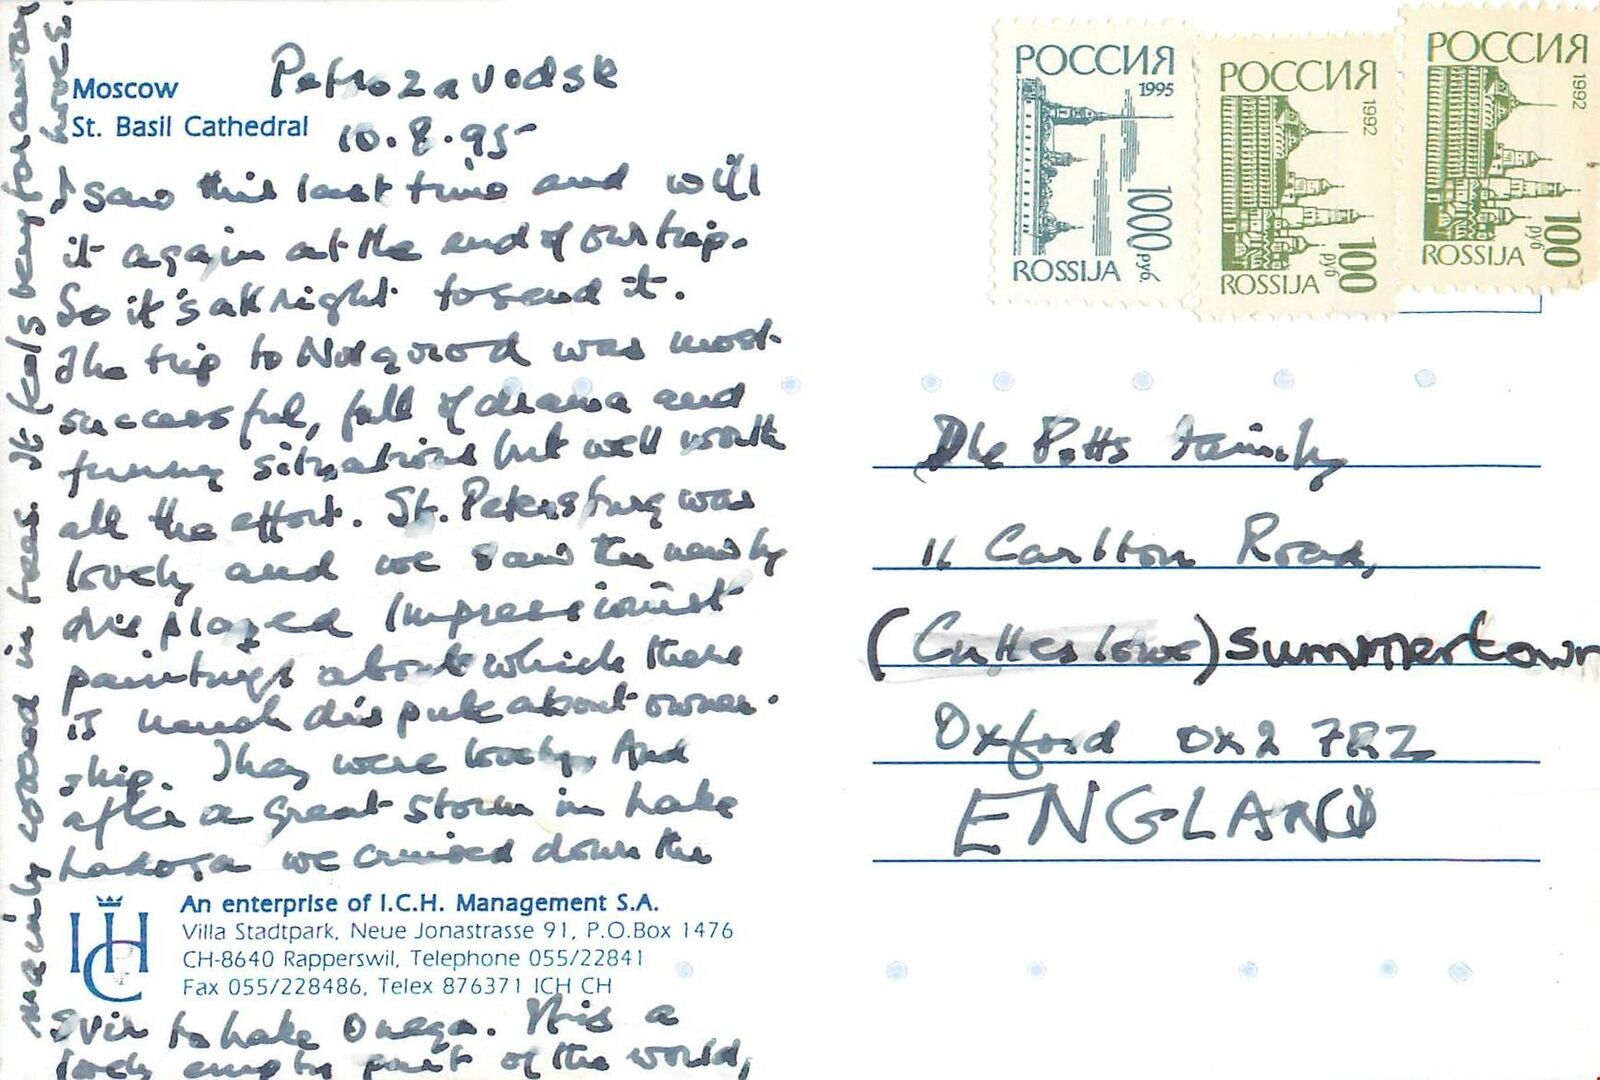 Moscow
St. Basil Cathedral
Petrozavodsk
10.8.95
I saw this last time and will
it again at the end of our trip.
So it's all right to send it.
The trip to Novgorod was most
successful, full of drama and
funny situations but well worth
all the effort. St. Petersburg was
lovely and we saw the newly
displayed Impressionist
paintings about which there
is much dispute about owner-
ship. They were lovely. And
after a great storm in Lake
Ladoga we cruised down the
An enterprise of I.C.H. Management S.A.
Villa Stadtpark, Neue Jonastrasse 91, P.O.Box 1476
CH-8640 Rapperswil, Telephone 055/22841
Fax 055/228486, Telex 876371 ICH CH
ICH
Svir to Lake Onega. This a
lovely empty part of the world,
mainly wooded in trees. It feels being far away
here.
РОССИЯ
1995
1000 руб.
ROSSIJA
РОССИЯ
1992
100 руб
ROSSIJA
РОССИЯ
1992
100 руб
ROSSIJA
The Potts Family
11 Carlton Road,
(Cutteslowe) summertown
Oxford OX2 7RZ
ENGLAND